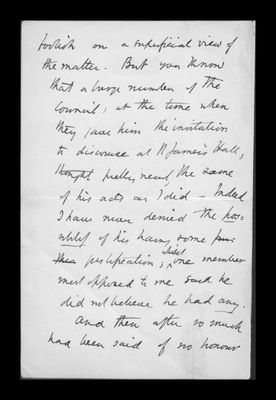 foolish on a superficial view of
the matter. But you know
that a large number of the
Council, at the time when
they gave him the invitation
to discourse at St James's Hall,
thought pretty nearly the same
of his acts as I did – Indeed
I have never denied the pos-
sibility of his having some
justification; whilst one member
most opposed to me said he
did not believe he had any.
And then after so much
had been said of no honour